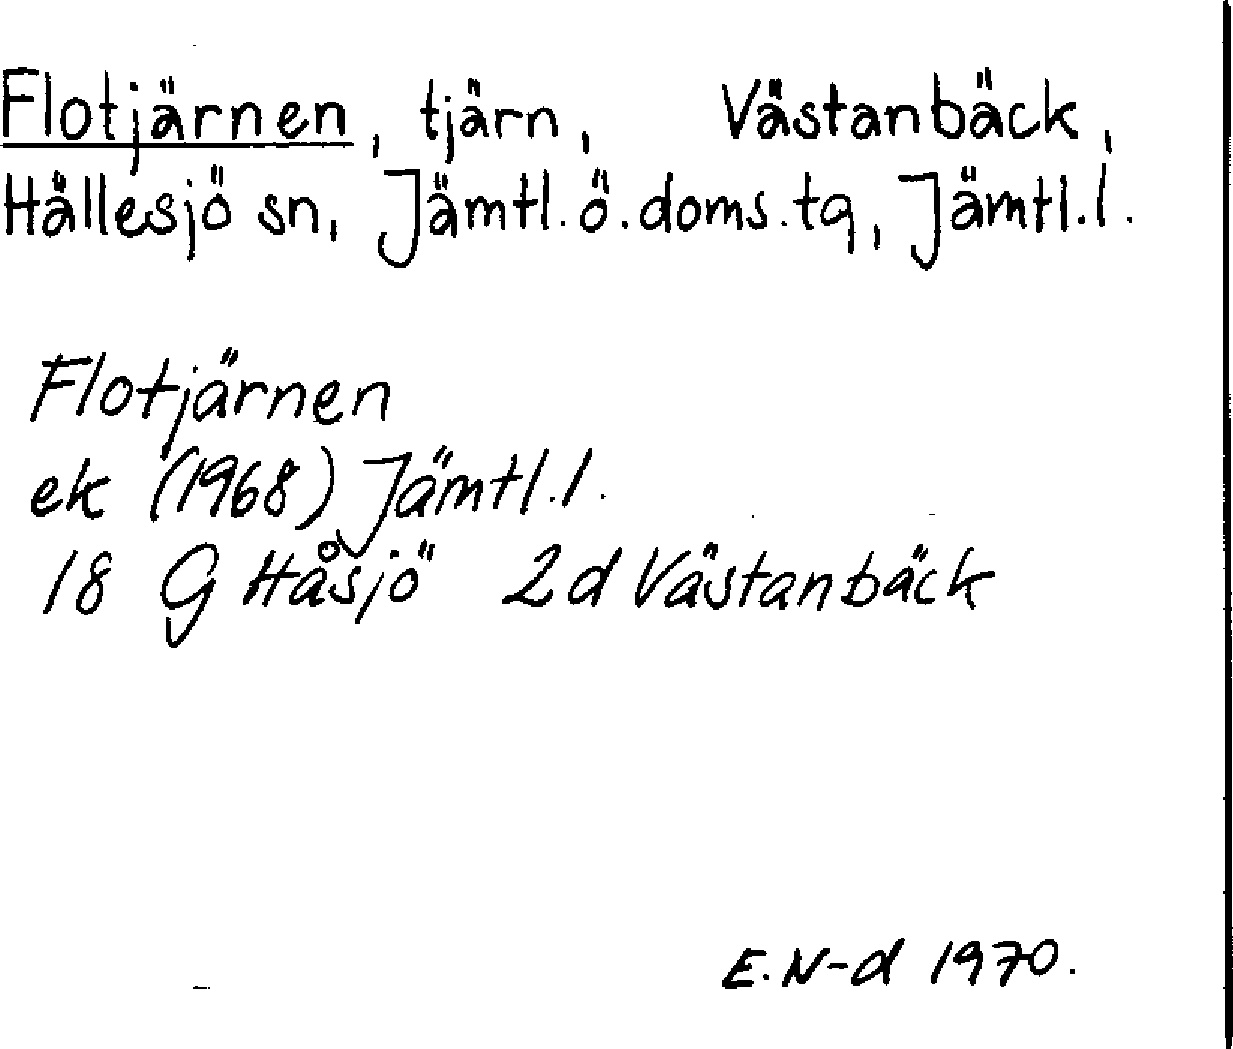 Flotjärnen, tjärn, Västanbäck,
Hällesjö sn, Jämtl. ö. doms. tg, Jämtl. l.
Flotjärnen
ek (1968) Jämtl. l.
18 G Håsjö 2d Västanbäck
E. N-d 1970.